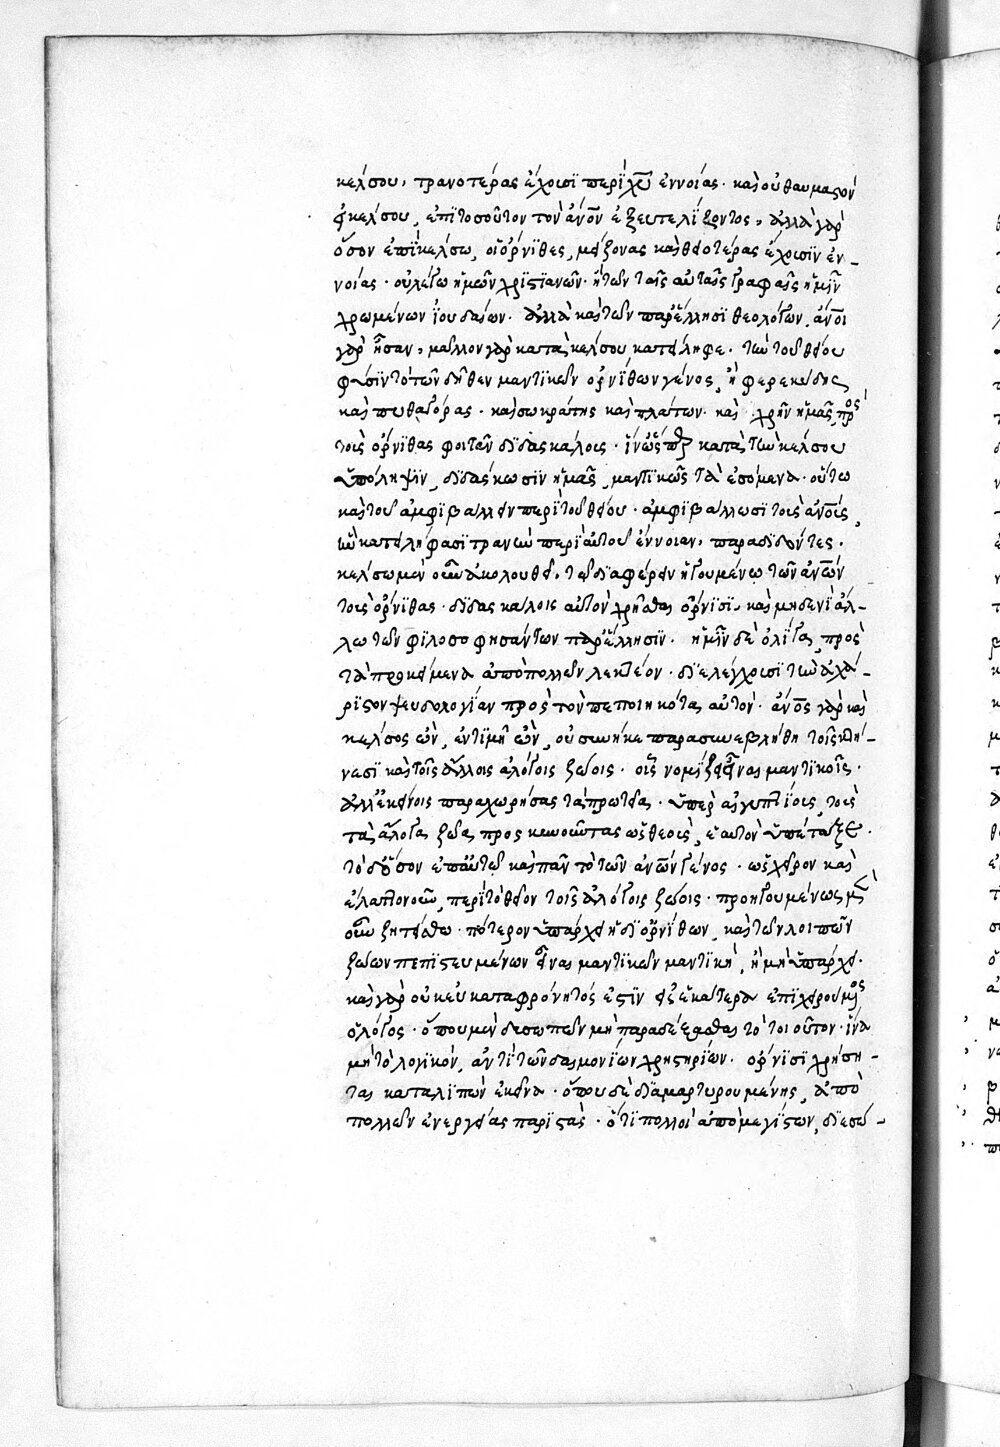 κέλσου, τρανοτέρας ἔχουσι περὶ θῦ ἐννοίας· καὶ οὐ θαυμαστὸν
εἰ κέλσου, ἐπὶ τοσοῦτον τὸν ἀνον ἐξευτελίζοντος, ἀλλὰ γὰρ
ὅσον ἐπὶ κέλσω, οἱ ὄρνιθες, μείζονας καὶ θειοτέρας ἔχουσιν ἐν-
νοίας· οὐ λέγω ἡμῶν χριστιανῶν· ἢ τῶν ταῖς αὐταῖς γραφαῖς ἡμῖν
χρωμένων ἰουδαίων· ἀλλὰ καὶ τῶν παρ' ἕλλησι θεολόγων, ἄνοι
γὰρ ἦσαν, μᾶλλον γὰρ κατὰ κέλσου κατείληφε· τὴν τοῦ θείου
φύσιν τὸ τῶν δῆθεν μαντικῶν ὀρνίθων γένος, ἢ φερεκύδης
καὶ πυθαγόρας· καὶ σωκράτης καὶ πλάτων· καὶ χρῆν ἡμᾶς, πρὸς
τοὺς ὄρνιθας φοιτᾶν διδασκάλους· ἵν' ὥσπερ κατὰ τὴν κέλσου
ὑπόληψιν, διδάσκωσιν ἡμᾶς, μαντικῶς τὰ ἐσόμενα· οὕτω
καὶ τοῦ ἀμφιβάλλειν περὶ τοῦ θείου· ἀμφιβάλλωσι τοὺς ἀνους,
ἣν κατειλήφασι τρανὴν περὶ αὐτοῦ ἔννοιαν, παραδιδόντες·
κέλσω μὲν οὖν ἀκολουθεῖ, τῶ διαφέρειν ἡγουμένω τῶν ἀνων
τοὺς ὄρνιθας· διδασκάλοις αὐτὸν χρῆσθαι ὄρνισι, καὶ μηδενὶ ἄλ-
λω τῶν φιλοσοφησάντων παρ' ἕλλησιν· ἡμῖν δὲ ὀλίγα, πρὸς
τὰ προκείμενα ἀπὸ πολλῶν λεκτέον· διελέγχουσι τὴν ἀχά-
ριστον ψευδολογίαν πρὸς τὸν πεποιηκότα αὐτόν· ἄνος γὰρ καὶ
κέλσος ὢν, ἐν τιμῆ ὢν, οὐ συνῆκε παρασυνεβλήθη τοῖς πτή-
νασι καὶ τοῖς ἄλλοις ἀλόγοις ζώοις· οἷς νομίζει εἶναι μαντικοῖς·
ἀλλ' ἐκείνοις παραχωρήσας τὰ πρωτεῖα· ὑπὲρ αἰγυπτίους, τοὺς
τὰ ἄλογα ζῶα προσκυνοῦντας ὡς θεοὺς, ἑαυτὸν ὑπέταξε·
τὸ δ' ὅσον ἐπ' αὐτῶ καὶ πᾶν τὸ τῶν ανων γένος· ὡς χεῖρον καὶ
ἐλαττονοοῦν, περὶ τὸ θεῖον τοῖς ἀλόγοις ζώοις· προηγουμένως μὲν
οὖν ζητείσθω· πότερον ὑπάρχει ἡ δι' ὀρνίθων, καὶ τῶν λοιπῶν
ζώων πεπιστευμένων εἶναι μαντικῶν μαντικὴ, ἢ μὴ ὑπάρχει·
καὶ γὰρ οὐκ εὐκαταφρόνητός ἐστιν εἰς ἑκάτερα ἐπιχειρούμενος
ὁ λόγος· ὅπου μὲν δυσωπῶν μὴ παραδέξασθαι τὸ τοιοῦτον· ἵνα
μὴ τὸ λογικὸν, ἀντὶ τῶν δαιμονίων χρηστηρίων· ὄρνισι χρήση-
ται καταλιπὼν ἐκεῖνα· ὅπου δὲ διαμαρτυρουμένης, ἀπὸ
πολλῶν ἐνεργείας παριστὰς· ὅτι πολλοὶ ἀπὸ μεγίστων, διεσώ-